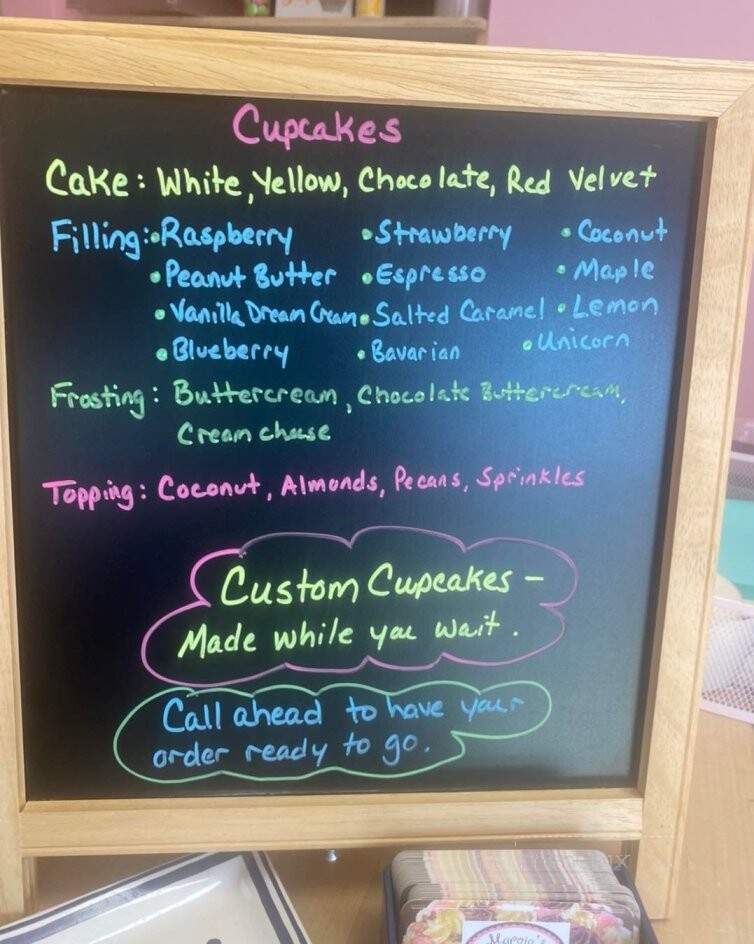 Cupcakes
Cake: White, Yellow, Chocolate, Red Velvet
Filling: • Raspberry • Strawberry • Coconut
• Peanut Butter • Espresso • Maple
• Vanilla Dream Cream • Salted Caramel • Lemon
• Blueberry • Bavarian • Unicorn
Frosting: Buttercream, Chocolate Buttercream,
Cream cheese
Topping: Coconut, Almonds, Pecans, Sprinkles
Custom Cupcakes -
Made while you wait.
Call ahead to have your
order ready to go.